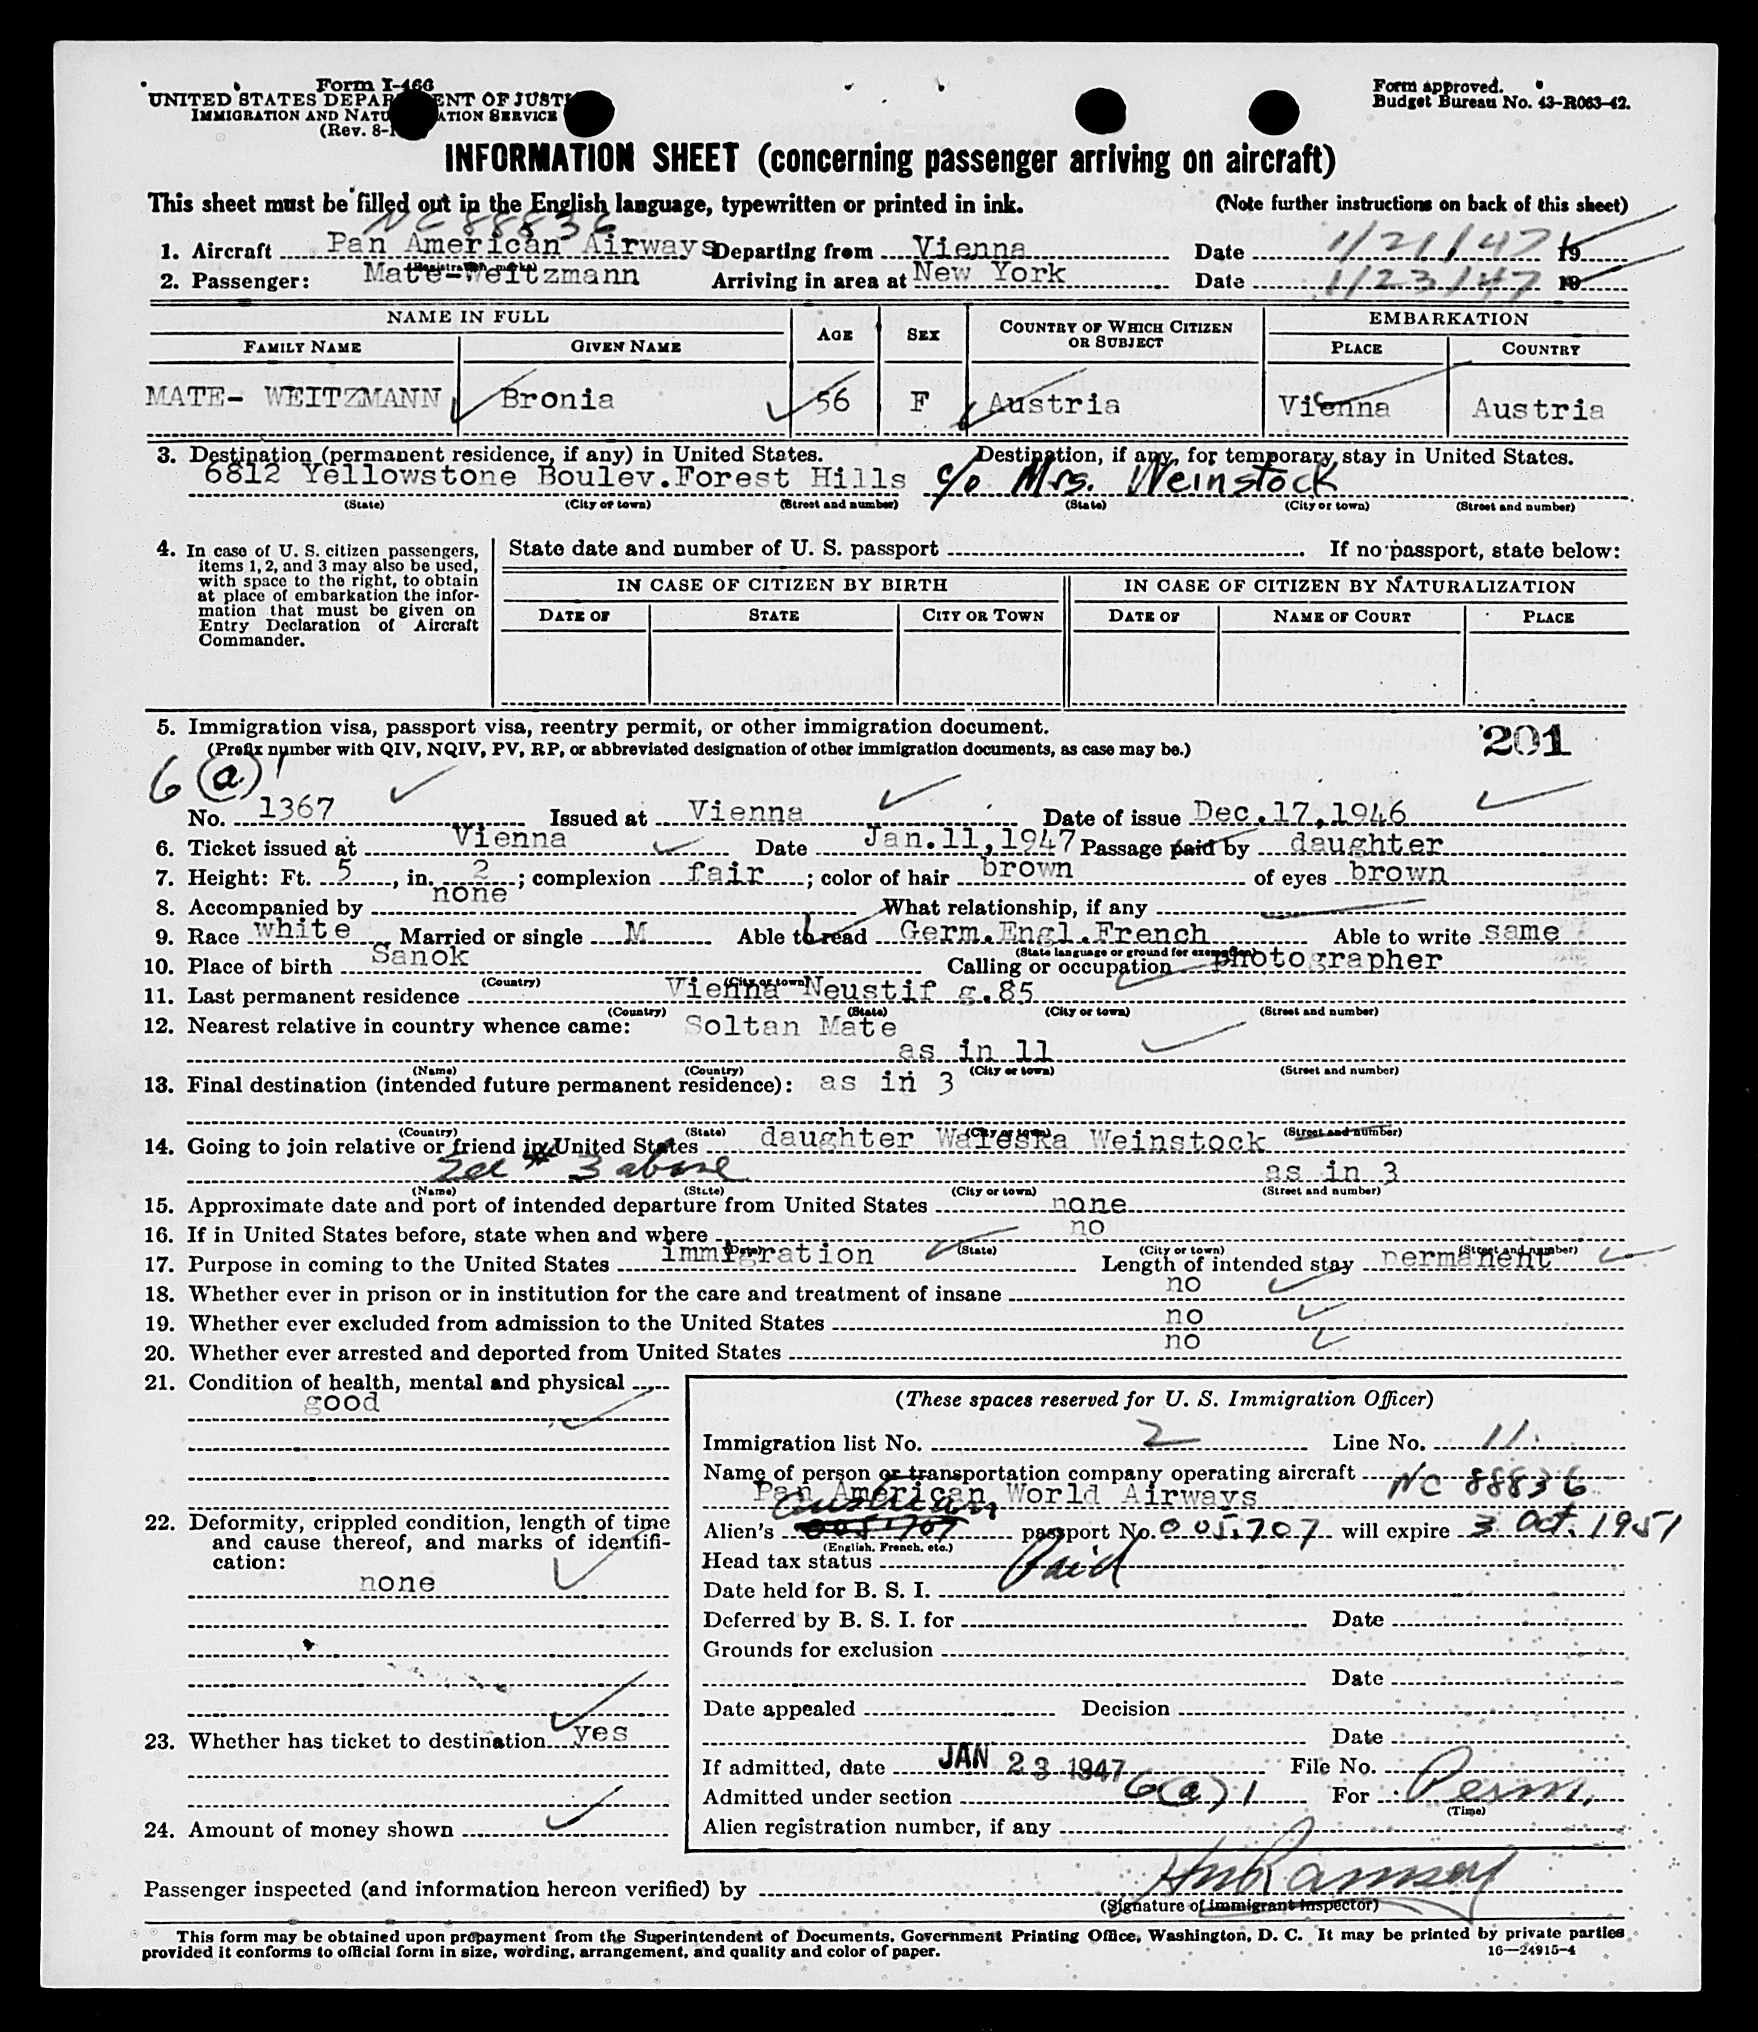 Form I-466
UNITED STATES DEPARTMENT OF JUSTICE
IMMIGRATION AND NATURALIZATION SERVICE
(Rev. 8-1
Form approved.
Budget Bureau No. 43-R063-42.
INFORMATION SHEET (concerning passenger arriving on aircraft)
This sheet must be filled out in the English language, typewritten or printed in ink. (Note further instructions on back of this sheet)
NC 88836
1. Aircraft Pan American Airways Departing from Vienna Date 1/21/47 19
(Registration marks)
2. Passenger: Mate-Weitzmann Arriving in area at New York Date 1/23/47 19
NAME IN FULL AGE SEX COUNTRY OF WHICH CITIZEN OR SUBJECT EMBARKATION
FAMILY NAME GIVEN NAME PLACE COUNTRY
MATE- WEITZMANN Bronia 56 F Austria Vienna Austria
3. Destination (permanent residence, if any) in United States. Destination, if any, for temporary stay in United States.
6812 Yellowstone Boulev.Forest Hills c/o Mrs. Weinstock
(State) (City or town) (Street and number) (State) (City or town) (Street and number)
4. In case of U. S. citizen passengers, items 1, 2, and 3 may also be used, with space to the right, to obtain at place of embarkation the information that must be given on Entry Declaration of Aircraft Commander.
State date and number of U. S. passport If no passport, state below:
IN CASE OF CITIZEN BY BIRTH IN CASE OF CITIZEN BY NATURALIZATION
DATE OF STATE CITY OR TOWN DATE OF NAME OF COURT PLACE
5. Immigration visa, passport visa, reentry permit, or other immigration document.
(Prefix number with QIV, NQIV, PV, RP, or abbreviated designation of other immigration documents, as case may be.)
201
6 (a) 1
No. 1367 Issued at Vienna Date of issue Dec.17,1946
6. Ticket issued at Vienna Date Jan.11,1947 Passage paid by daughter
7. Height: Ft. 5, in. 2; complexion fair; color of hair brown of eyes brown
8. Accompanied by none What relationship, if any
9. Race white Married or single M Able to read Germ.Engl.French Able to write same
(State language or ground for exemption)
10. Place of birth Sanok Calling or occupation photographer
(Country) (City or town)
11. Last permanent residence Vienna Neustif g.85
(Country) (State) (City or town) (Street and number)
12. Nearest relative in country whence came: Soltan Mate
as in 11
(Name) (Country) (City or town) (Street and number)
13. Final destination (intended future permanent residence): as in 3
(Country) (State) (City or town) (Street and number)
14. Going to join relative or friend in United States daughter Waleska Weinstock
See # 3 above as in 3
(Name) (State) (City or town) (Street and number)
15. Approximate date and port of intended departure from United States none
16. If in United States before, state when and where no
(Date) (State) (City or town) (Street and number)
17. Purpose in coming to the United States immigration Length of intended stay permanent
18. Whether ever in prison or in institution for the care and treatment of insane no
19. Whether ever excluded from admission to the United States no
20. Whether ever arrested and deported from United States no
21. Condition of health, mental and physical
good
22. Deformity, crippled condition, length of time and cause thereof, and marks of identification:
none
23. Whether has ticket to destination yes
24. Amount of money shown
(These spaces reserved for U. S. Immigration Officer)
Immigration list No. 2 Line No. 11
Name of person or transportation company operating aircraft NC 88836
Pan American World Airways
Austrian
Alien's 005707 passport No. 005.707 will expire 3 Oct. 1951
(English, French, etc.)
Head tax status Paid
Date held for B. S. I.
Deferred by B. S. I. for Date
Grounds for exclusion
Date
Date appealed Decision
Date
If admitted, date JAN 23 1947 File No.
Admitted under section 6(a)1 For Perm.
(Time)
Alien registration number, if any
Passenger inspected (and information hereon verified) by
(Signature of immigrant inspector)
This form may be obtained upon prepayment from the Superintendent of Documents, Government Printing Office, Washington, D. C. It may be printed by private parties
provided it conforms to official form in size, wording, arrangement, and quality and color of paper. 16—24915-4